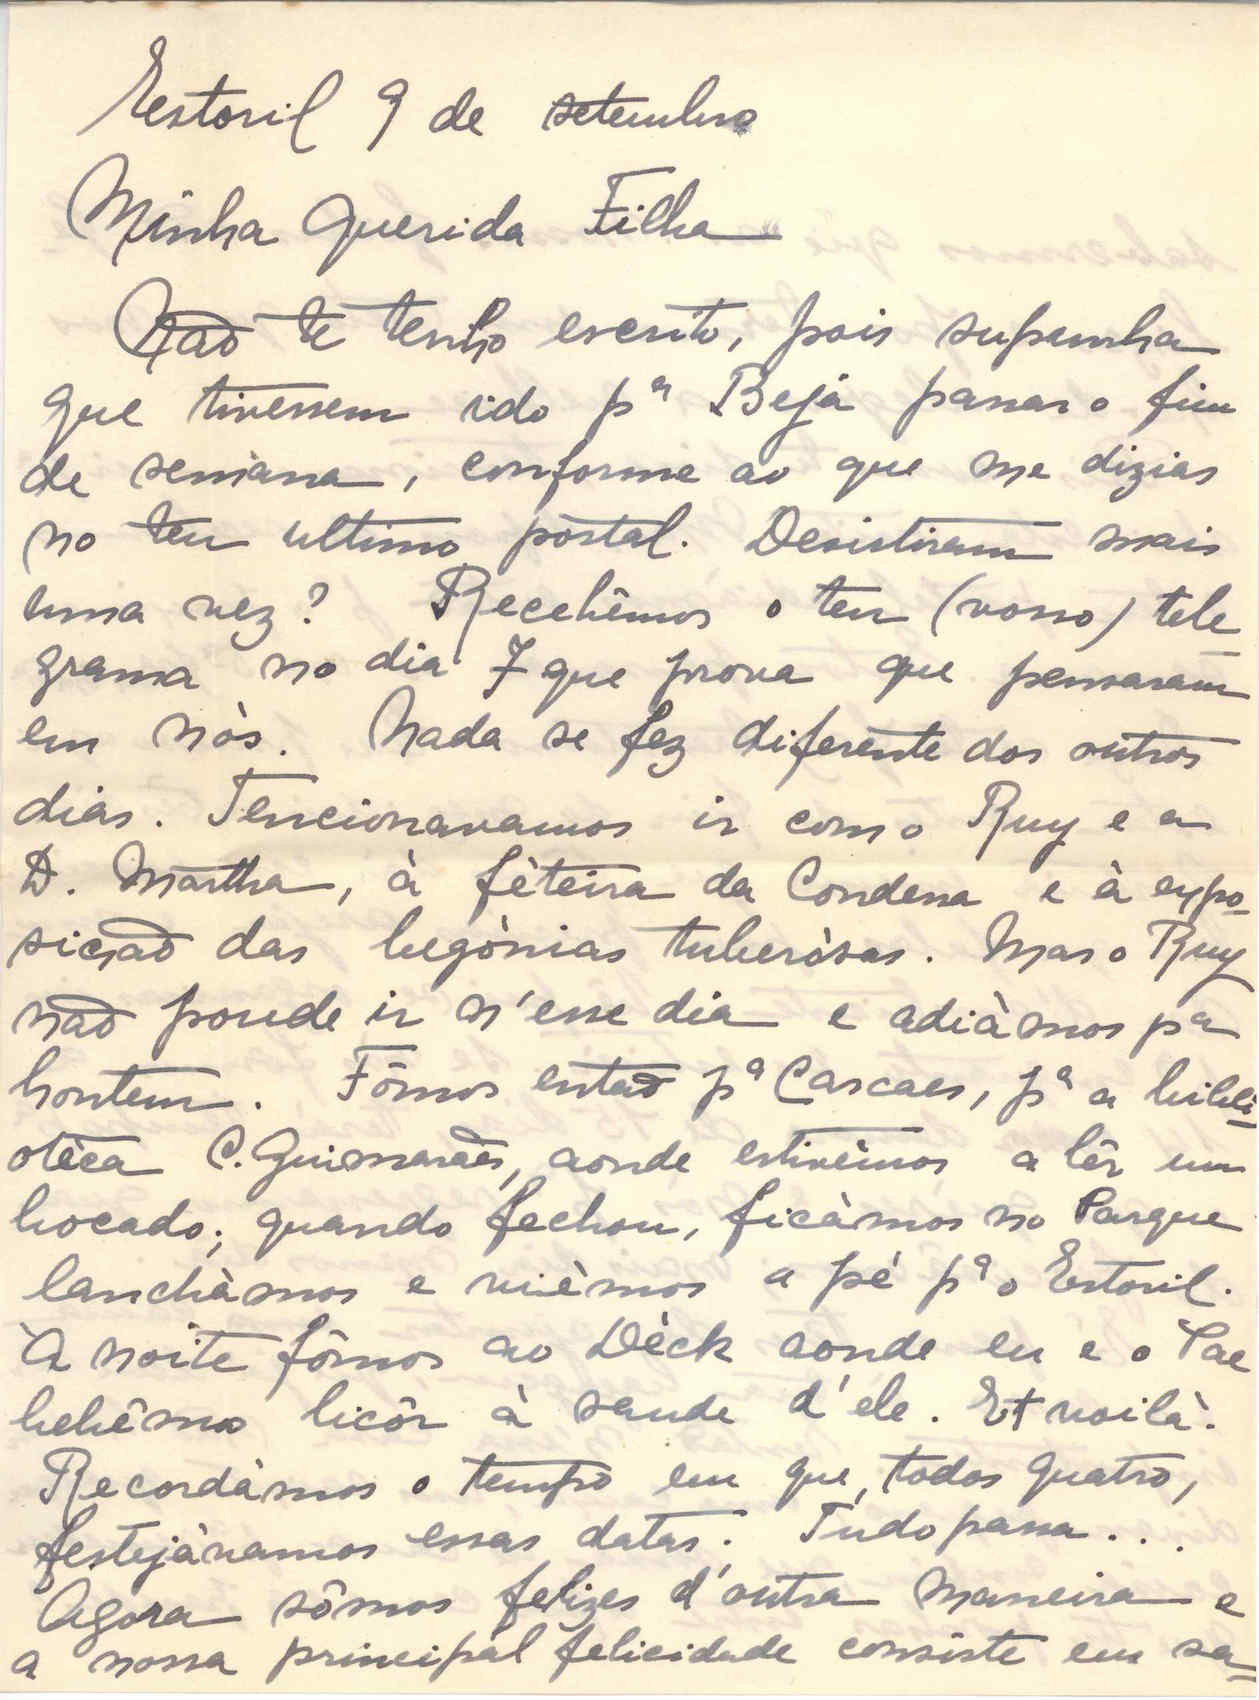 Estoril 9 de setembro
Minha querida Filha
Não te tenho escrito, pois supunha
que tivessem ido pª Beja passar o fim
de semana, conforme ao que me dizias
no teu ultimo pòstal. Desistiram mais
uma vez? Recebêmos o teu (vosso) tele
grama no dia 7 que prova que pensaram
em nòs. Nada se fez diferente dos outros
dias. Tencionavamos ir com o Ruy e a
D. Martha, à fèteira da Condessa e à expo-
sição das begònias tuberòsas. Mas o Ruy
não poude ir n'esse dia e adiàmos pª
hontem. Fômos então pª Cascaes, pª a bibli-
otèca C. Guimarães, aonde estivèmos a lêr um
bocado; quando fechou, ficàmos no Parque
lanchàmos e vièmos a pé pª o Estoril.
À noite fômos ao Dèck aonde eu e o Pae
bebêmos licôr à saude d'ele. Et voilà.
Recordàmos o tempo em que, todos quatro,
festejàvamos essas datas. Tudo passa...
Agora sômos felizes d'outra maneira e
a nossa principal felicidade consiste em sa=